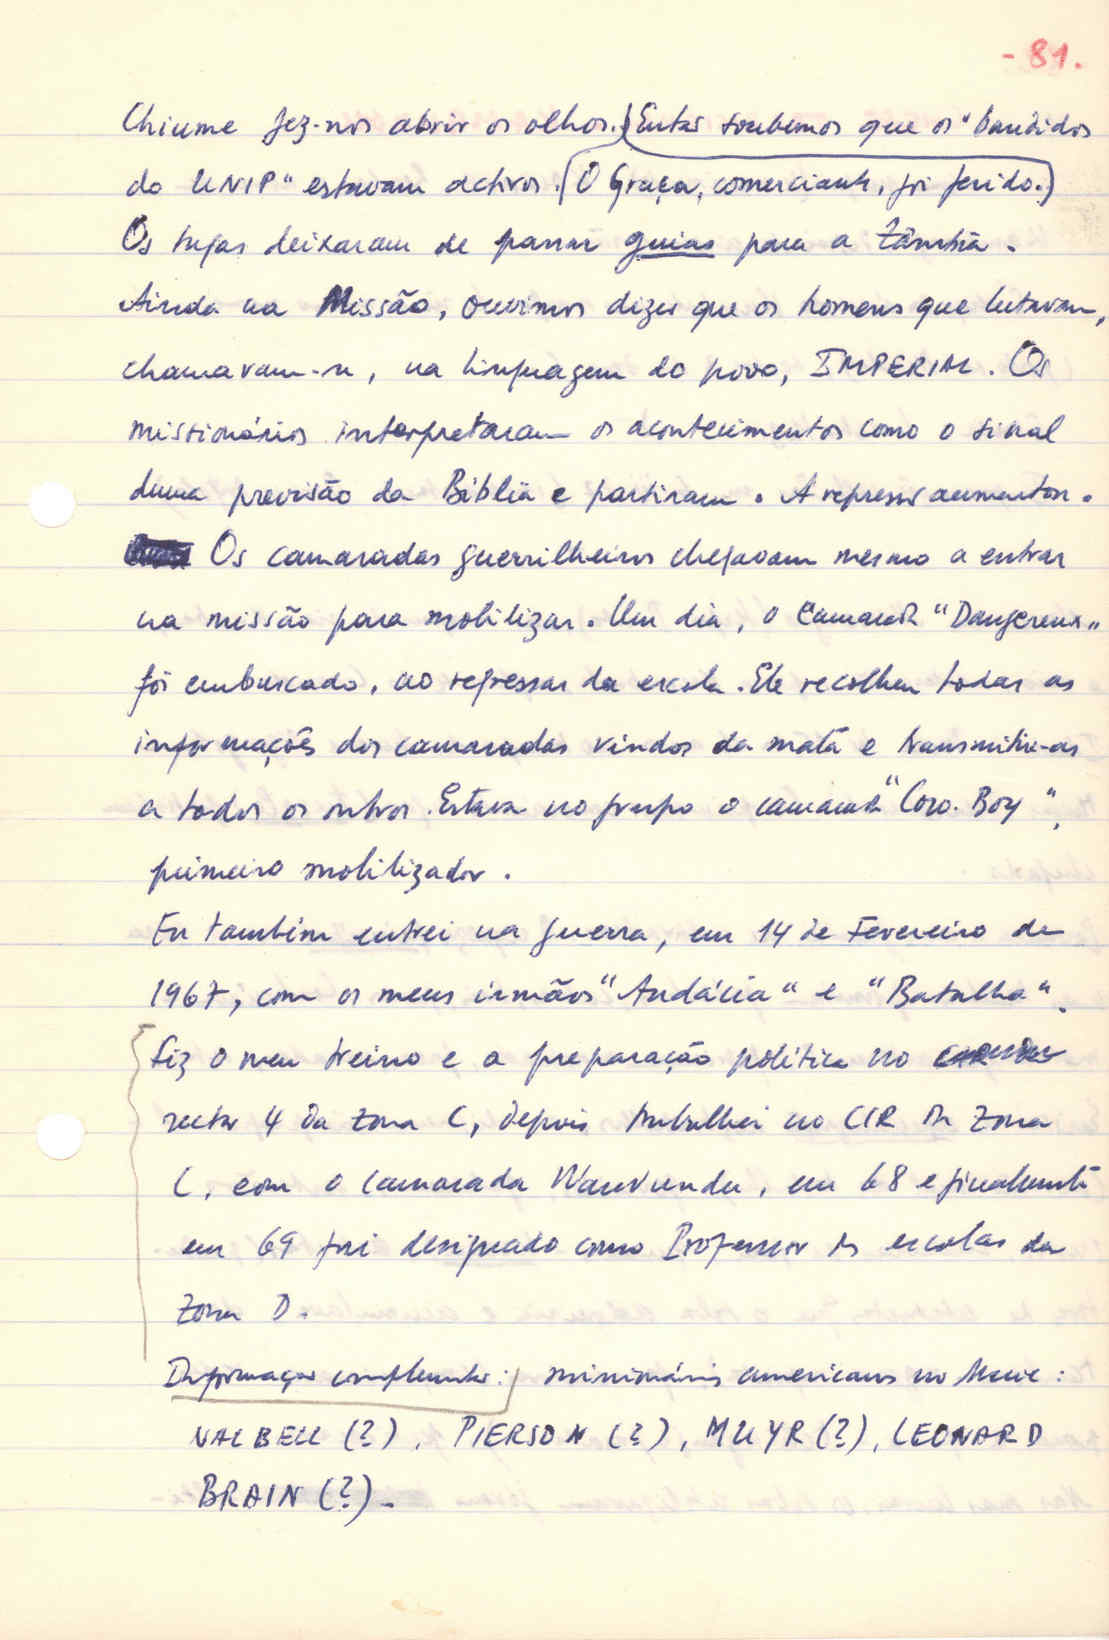 - 81.
Chiume fez-nos abrir os olhos. Então soubemos que os "bandidos
do UNIP" estavam activos. (O Graça, comerciante, foi ferido.)
Os tugas deixaram de passar guias para a Zâmbia.
Ainda na Missão, ouvimos dizer que os homens que lutavam,
chamavam-se, na linguagem do povo, IMPERIAL. Os
missionários interpretaram os acontecimentos como o sinal
duma previsão da Bíblia e partiram. A repressão aumentou.
Os camaradas guerrilheiros chegavam mesmo a entrar
na missão para mobilizar. Um dia, o camarada "Dangereux"
foi embuscado, ao regressar da escola. Ele recolheu todas as
informações dos camaradas vindos da mata e transmitiu-as
a todos os outros. Estava no grupo o camarada "Cow-Boy",
primeiro mobilizador.
Eu também entrei na guerra, em 14 de Fevereiro de
1967, com os meus irmãos "Audácia" e "Batalha".
Fiz o meu treino e a preparação política no
sector 4 da zona C, depois trabalhei no CIR da Zona
C, com o camarada, em 68 e finalmente
em 69 fui designado como Professor das escolas da
Zona D.
Informações complementares: missionários americanos no Muie:
NALBELL (?), PIERSON (?), MUYR (?), LEONARD
BRAIN (?).